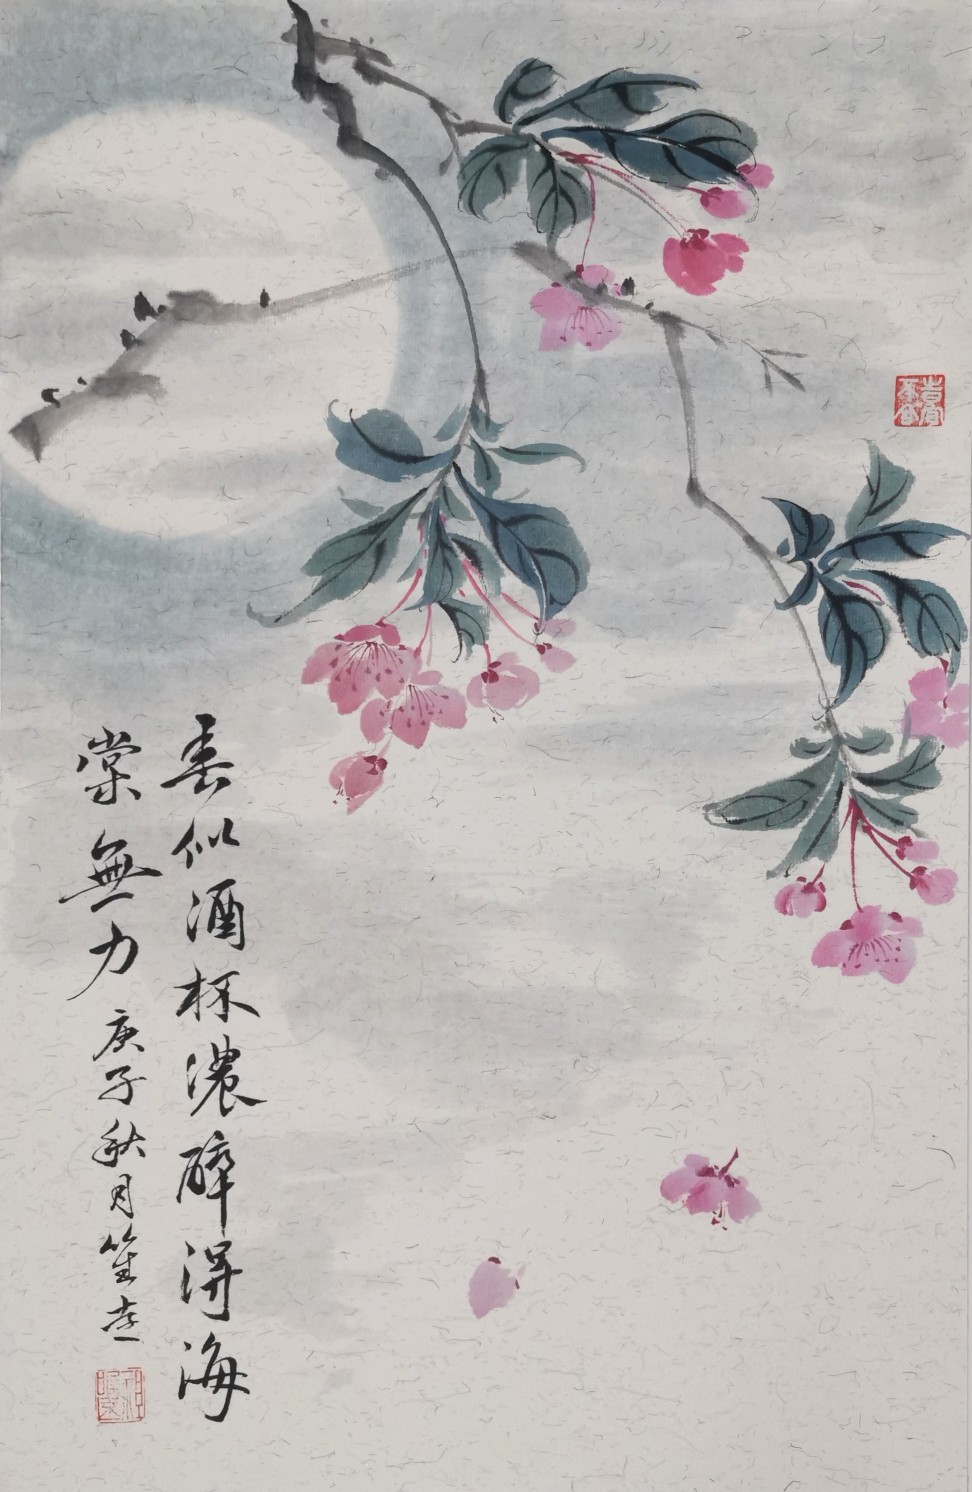 春似酒杯濃醉得海
棠無力庚子秋月笙